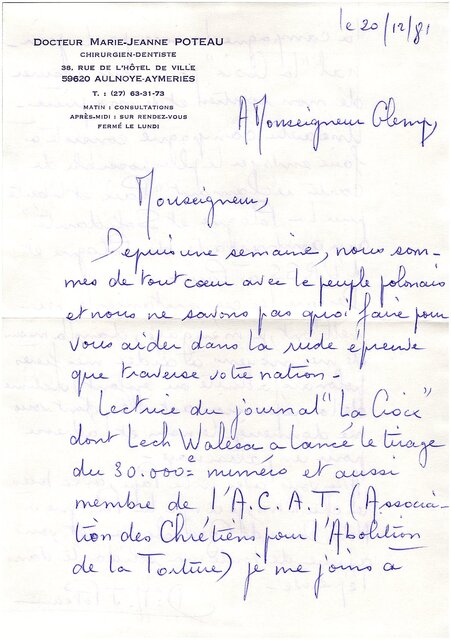 le 20/12/81
DOCTEUR MARIE-JEANNE POTEAU
CHIRURGIEN-DENTISTE
38, RUE DE L'HÔTEL DE VILLE
59620 AULNOYE-AYMERIES
T. : (27) 63-31-73
MATIN : CONSULTATIONS
APRÈS-MIDI : SUR RENDEZ-VOUS
FERMÉ LE LUNDI
A Monseigneur Glemp,
Monseigneur,
Depuis une semaine, nous som-
mes de tout cœur avec le peuple polonais
et nous ne savons pas quoi faire pour
vous aider dans la rude épreuve
que traverse votre nation -
Lectrice du journal "La Croix"
dont Lech Walesa a lancé le tirage
du 30.000e numéro et aussi
membre de l'A.C.A.T. (Associa-
tion des Chrétiens pour l'Abolition
de la Torture) je me joins à